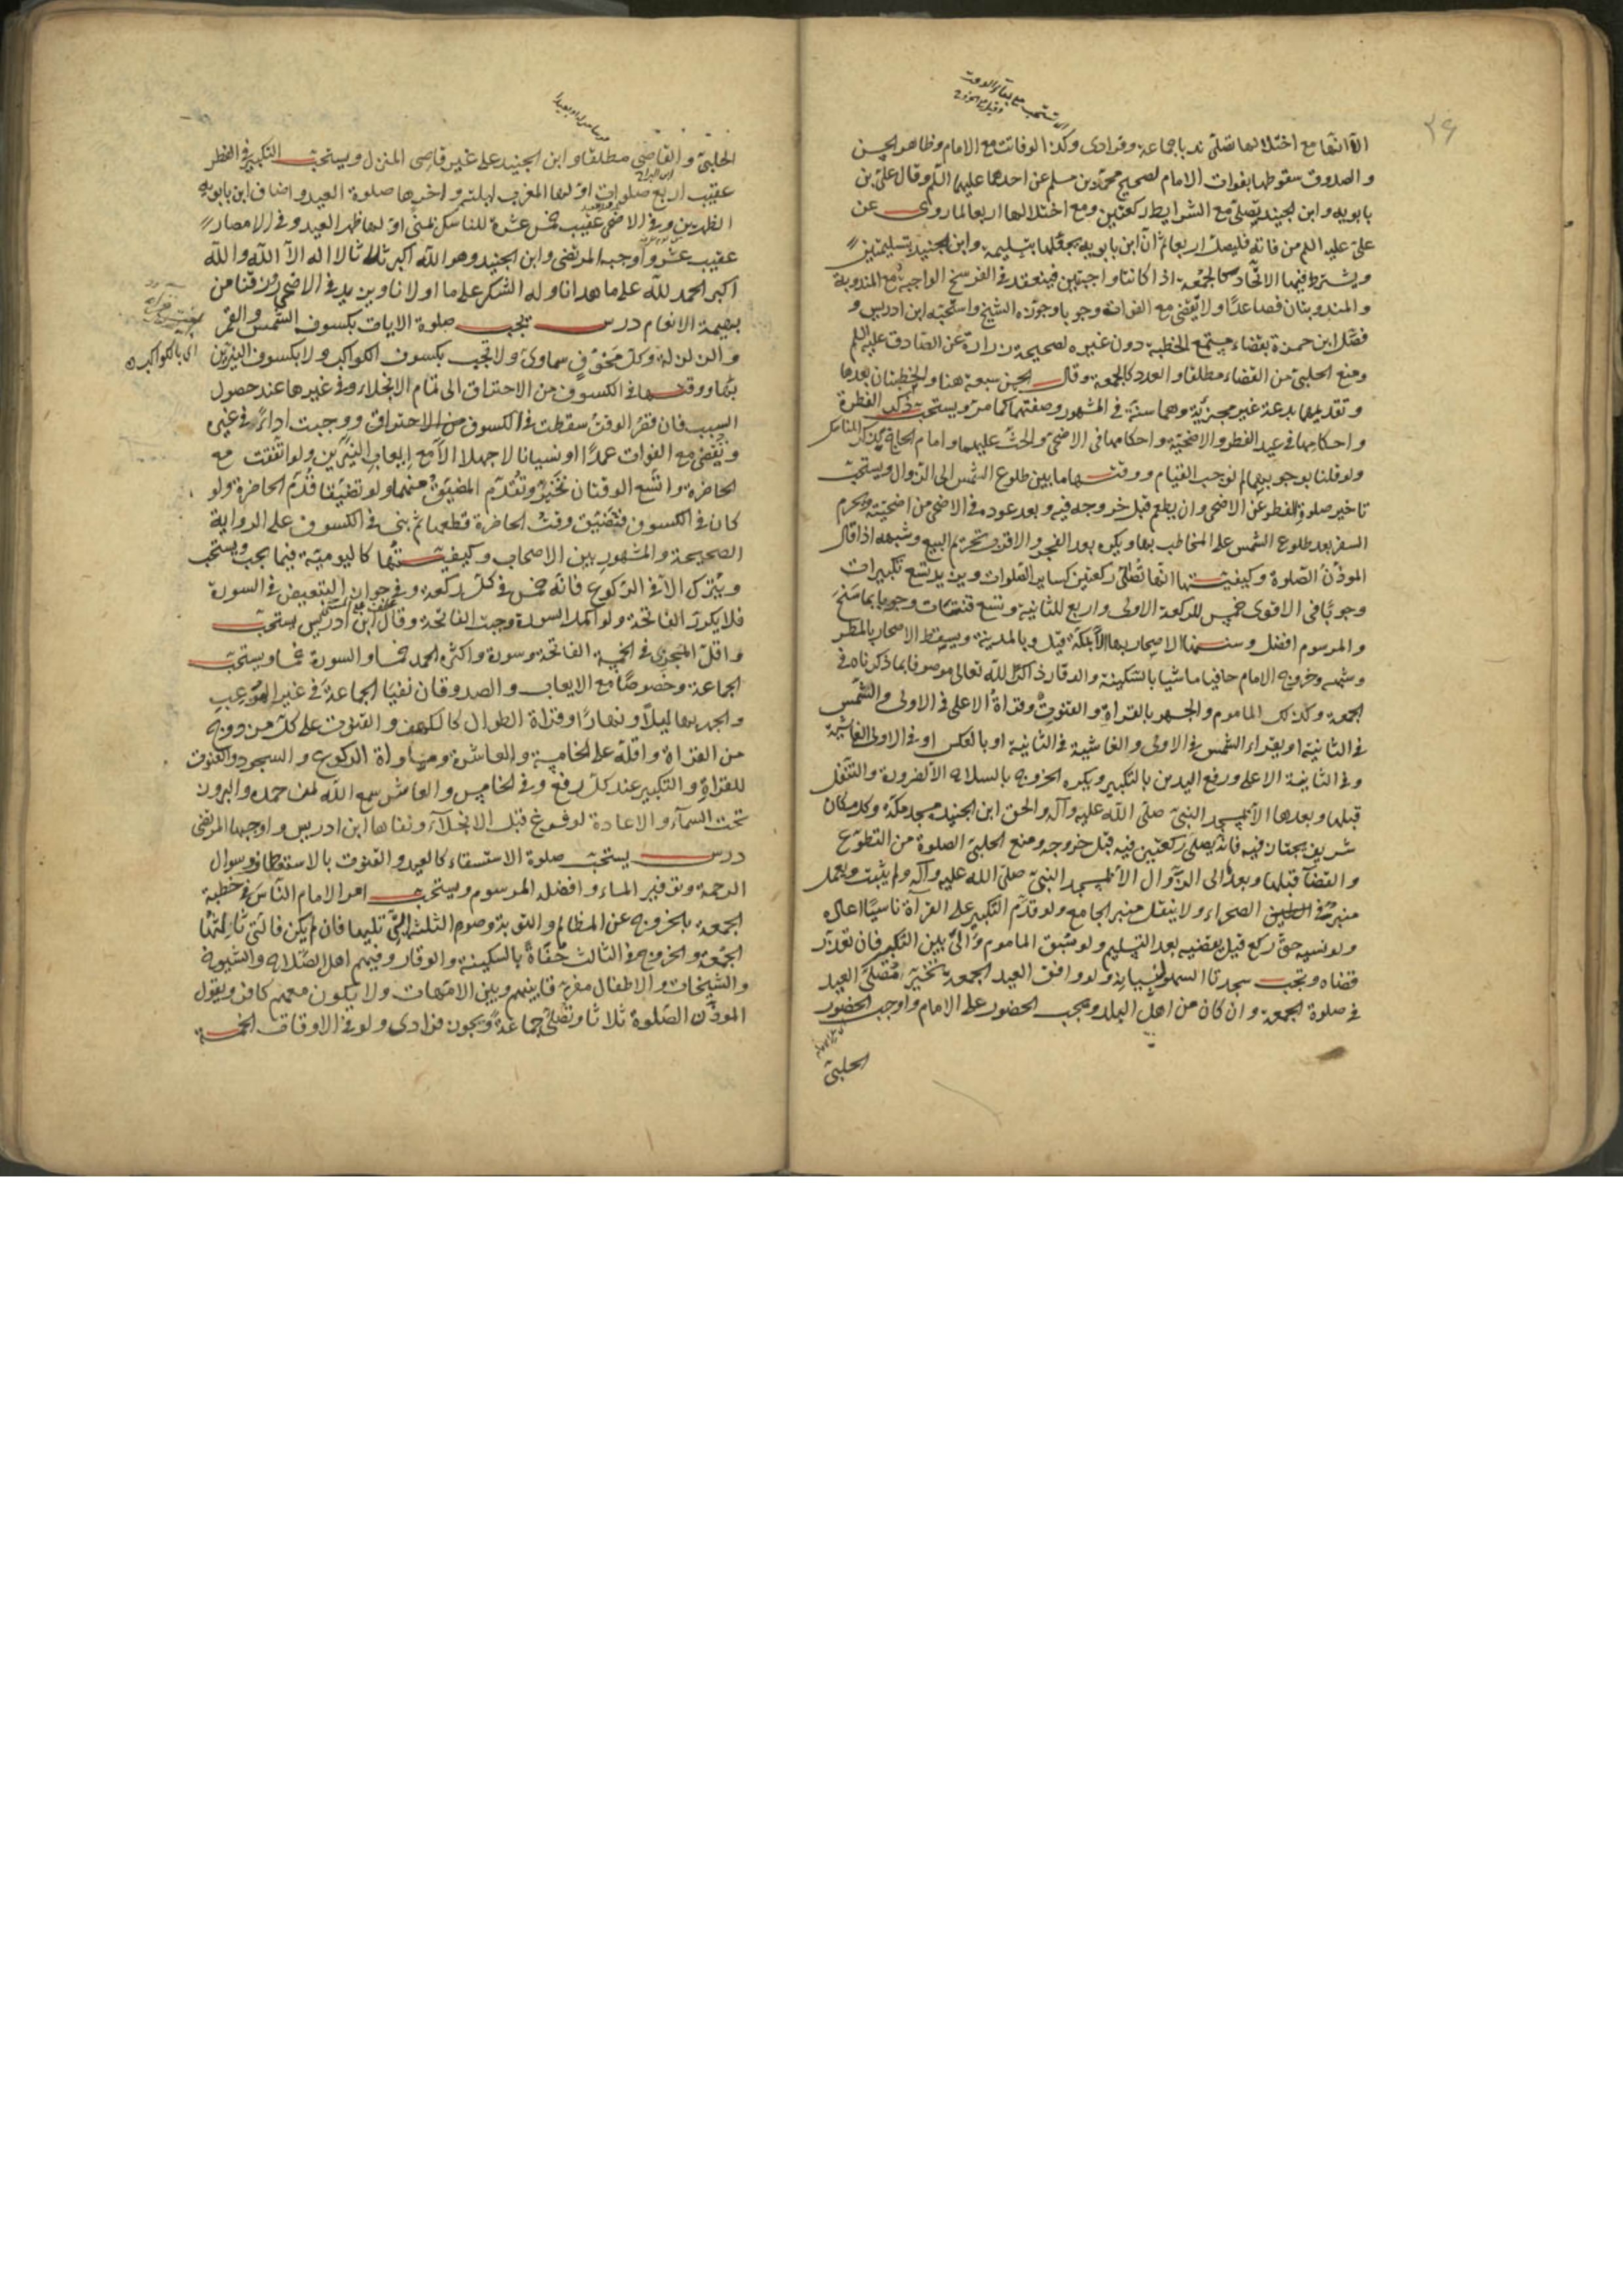 ٣۶
الا انها مع اختلالها تصلى ندبا جماعة وفرادى وكذا لو فاتت مع الامام وظاهر الحسن
والصدوق سقوطها بفوات الامام لصحيح محمد بن مسلم عن احدهما عليهما السلم وقال علي بن
بابويه وابن الجنيد يصلى مع الشرايط ركعتين ومع اختلالها اربعا لما روى عن
على عليه السلم من فاته فليصل اربعا ثم ان ابن بابويه يجعلها بتسليمة وابن الجنيد بتسليمتين
ويشترط فيها الاتحاد كالجمعة اذا كانتا واجبتين فينعقد في الفرسخ الواجبة مع المندوبة
والمندوبتان فصاعدًا ولا يقضى مع الفوات وجوبا وجوزه الشيخ واستحبه ابن ادريس و
فصّل ابن حمزة بقضاء مستمع الخطبة دون غيره لصحيحة زرارة عن الصادق عليه السلم
ومنع الحلبي من القضاء مطلقا والعدد كالجمعة وقال الحسن سبعة هنا والخطبتان بعدها
وتقديمها بدعة غير مجزية وهما سنة في المشهور وصفتهما كما مر ويستحب ذكر الفطرة
واحكامها في عيد الفطر والاضحية واحكامها في الاضحى والحث عليهما وامام الحاج يذكر المناسك
ولو قلنا بوجوبهما لم نوجب القيام ووقتها ما بين طلوع الشمس الى الزوال ويستحب
تاخير صلوة الفطر عن الاضحى وان يطعم قبل خروجه فيه وبعد عوده في الاضحى من اضحيته ويحرم
السفر بعد طلوع الشمس على المخاطب بها ويكره بعد الفجر والاقرب تحريم البيع وشبهه اذا قال
الموذن الصلوة وكيفيتها انها تصلى ركعتين كساير الصلوات ويزيد تسع تكبيرات
وجوبًا في الاقوى خمس للركعة الاولى واربع للثانية وتسع قنتات وجوبا بما سنح
والمرسوم افضل وسننها الاصحار بها الا بمكة قيل وبالمدينة ويسقط الاصحار بالمطر
وشبهه وخروج الامام حافيا ماشيا بالسكينة والوقار ذاكرًا لله تعالى موصوفا بما ذكرناه في
الجمعة وكذلك الماموم والجهر بالقراة والقنوت وقراة الاعلى في الاولى والشمس
في الثانية او يقراء الشمس في الاولى والغاشية في الثانية او بالعكس او في الاولى الغاشية
وفي الثانية الاعلى ورفع اليدين بالتكبير ويكره الخروج بالسلاح الا لضرورة والتنفل
قبلها وبعدها الا بمسجد النبي صلى الله عليه وآله والحق ابن الجنيد مسجد مكة وكل مكان
شريف يجتاز فيه فانه يصلى ركعتين فيه قبل خروجه ومنع الحلبي الصلوة من التطوع
والقضآ قبلها وبعدها الى الزوال الا بمسجد النبي صلى الله عليه وآله ولم يثبت ويعمل
منبر في الصحراء ولا ينقل منبر الجامع ولو قدّم التكبير على القراة ناسيًا اعاده
ولو نسيه حتى ركع قيل يقضيه بعد التسليم ولو سُبق الماموم والى بين التكبير فان تعذر
قضاه ويجب سجدتا السهو لنسيانه ولو وافق العيد الجمعة تخير مصلى العيد
في صلوة الجمعة وان كان من اهل البلد ويجب الحضور على الامام واوجب الحضور
الحلبي
الحلبي والقاضي مطلقا وابن الجنيد على غير قاصى المنزل ويستحب التكبير في الفطر
عقيب اربع صلوات اولها المغرب ليلته واخرها صلوة العيد واضاف ابن بابويه
الظهرين وفي الاضحى عقيب خمس عشرة للناسك بمنى اولها ظهر العيد وفي الامصار
عقيب عشر واوجبه المرتضى وابن الجنيد وهو الله اكبر ثلثا لا اله الا الله والله
اكبر الحمد لله على ما هدانا وله الشكر على ما اولانا ويزيد في الاضحى ورزقنا من
بهيمة الانعام درس تجب صلوة الايات بكسوف الشمس والقمر
والزلزلة وكل مخوف سماوى ولا تجب بكسوف الكواكب ولا بكسوف النيرين اى بالكواكب
بها ووقتها في الكسوف من الاحتراق الى تمام الانجلاء وفي غيرها عند حصول
السبب فان قصر الوقت سقطت في الكسوف من الاحتراق ووجبت اداءً في غيره
وتقضى مع الفوات عمدًا او نسيانا لا جهلا الا مع ايعاب النيّرين ولو اتفقت مع
الحاضرة واتسع الوقتان تخير وتقدم المضيق منهما ولو تضيّقا قُدّم الحاضرة ولو
كان في الكسوف فتضيق وقت الحاضرة قطعها ثم بنى في الكسوف على الرواية
الصحيحة والمشهور بين الاصحاب وكيفيتها كاليومية فيما يجب ويستحب
ويترك الا في الركوع فانه خمس في كل ركعة وفي جواز التبعيض في السورة
فلا يكرر الفاتحة ولو اكمل السورة وجبت الفاتحة وقال ابن ادريس يستحب
واقل المجزى في الخمسة الفاتحة وسورة واكثره الحمد خمسا والسورة خمسا ويستحب
الجماعة وخصوصًا مع الايعاب والصدوقان نفيا الجماعة في غير الموعب
والجهر بها ليلًا ونهارًا وقراة الطوال كالكهف والقنوت على كل مزدوج
من القراة واقله على الخامسة والعاشرة ومساواة الركوع والسجود والقنوت
للقراة والتكبير عند كل رفع وفي الخامس والعاشر سمع الله لمن حمده والبروز
تحت السمآء والاعادة لو فرغ قبل الانجلآء ونفاها ابن ادريس واوجبها المرتضى
درس يستحب صلوة الاستسقاء كالعيد والقنوت بالاستعطاف وسوال
الرحمة وتوفير الماء وافضله المرسوم ويستحب امر الامام الناس في خطبة
الجمعة بالخروج عن المظالم والتوبة وصوم الثلثة التي تليها فان لم يكن فالتي ثالثها
الجمعة والخروج في الثالث حفاةً بالسكينة والوقار وفيهم اهل الصلاح والشيوخ
والشيخات والاطفال مفرقا بينهم وبين الامهات ولا يكون معهم كافر ويقول
الموذن الصلوة ثلاثا وتصلى جماعة ويجوز فرادى ولو في الاوقات الخمسة